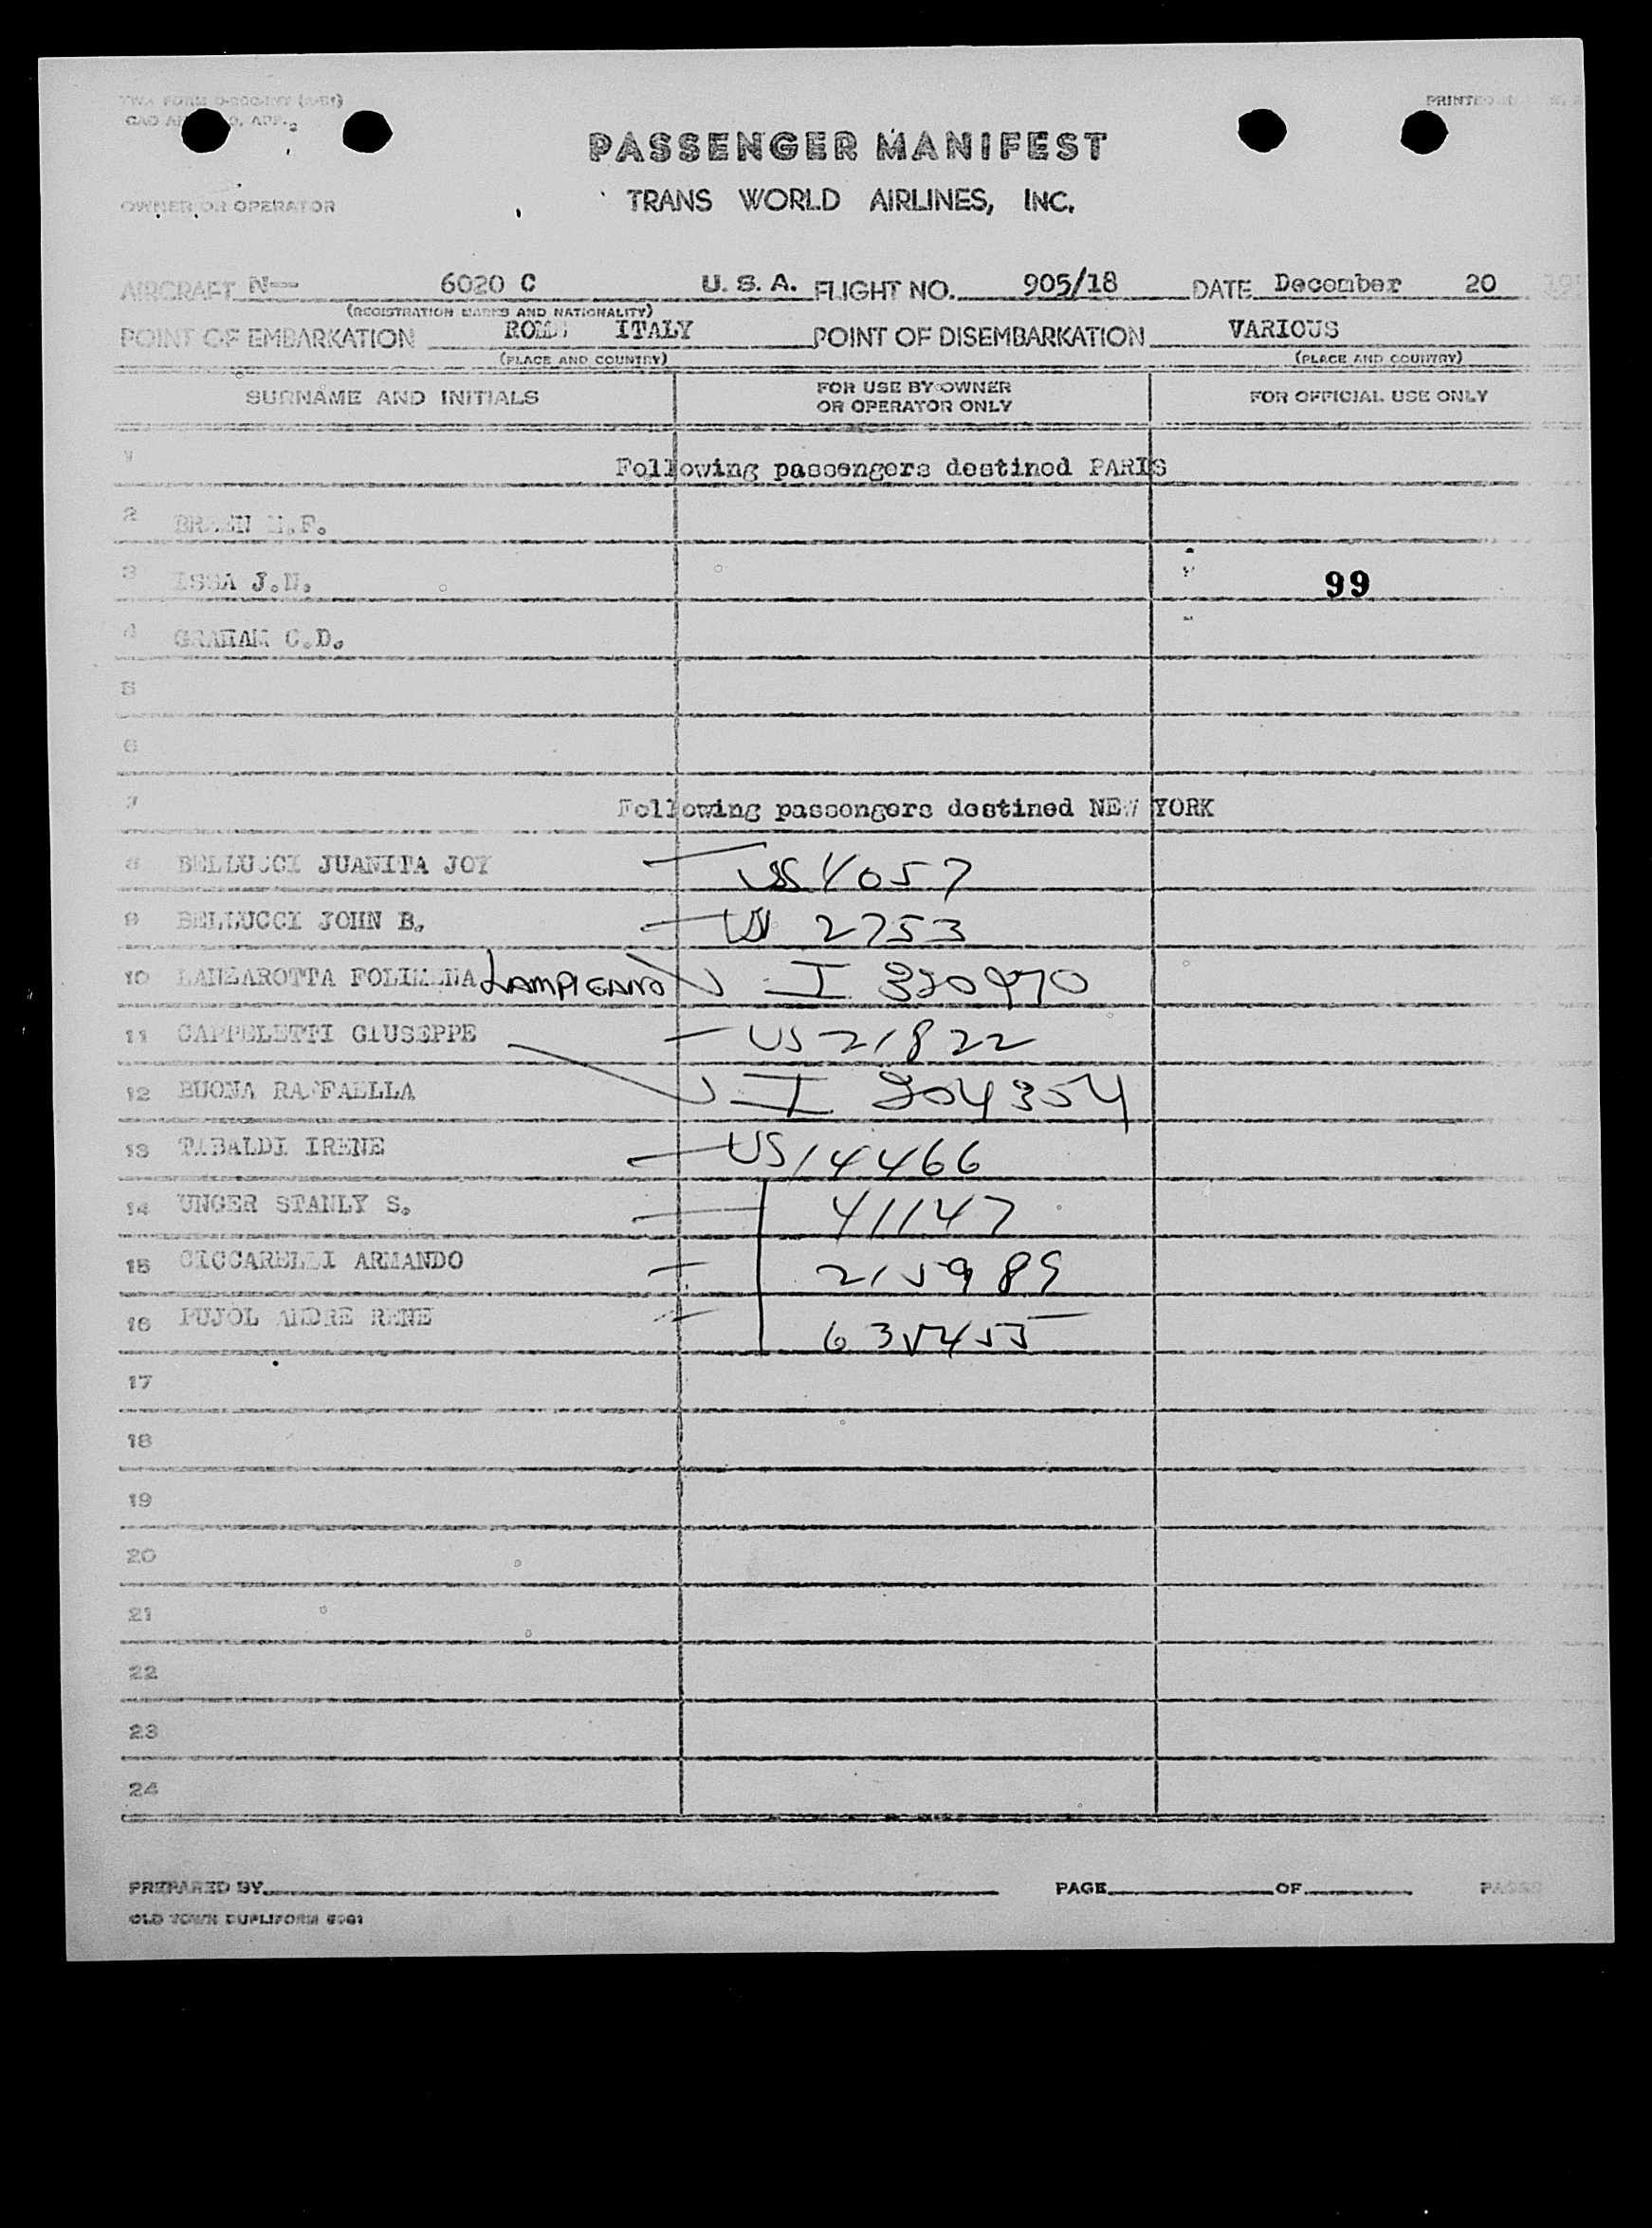 PRINTED
PASSENGER MANIFEST
OWNER OR OPERATOR
TRANS WORLD AIRLINES, INC.
AIRCRAFT N— 6020 C U. S. A. FLIGHT NO. 905/18 DATE December 20
(REGISTRATION MARKS AND NATIONALITY)
POINT OF EMBARKATION ROME ITALY POINT OF DISEMBARKATION VARIOUS
(PLACE AND COUNTRY) (PLACE AND COUNTRY)
SURNAME AND INITIALS FOR USE BY OWNER OR OPERATOR ONLY FOR OFFICIAL USE ONLY
1 Following passengers destined PARIS
2
3 ISSA J.N. 99
4 GRAHAM C.D.
5
6
7 Following passengers destined NEW YORK
8 BELLUCCI JUANITA JOY US 4057
9 BELLUCCI JOHN B. US 2753
10 LANZAROTTA FOLIMENA LAMPIGANO I 320970
11 CAPPELETTI GIUSEPPE US 21822
12 BUONA RAFFAELLA I 204354
13 TABALDI IRENE US 14466
14 UNGER STANLY S. 41147
15 CICCARELLI ARMANDO 215989
16 PUJOL ANDRE RENE 635455
17
18
19
20
21
22
23
24
PREPARED BY PAGE OF PAGES
OLD TOWN DUPLIFORM